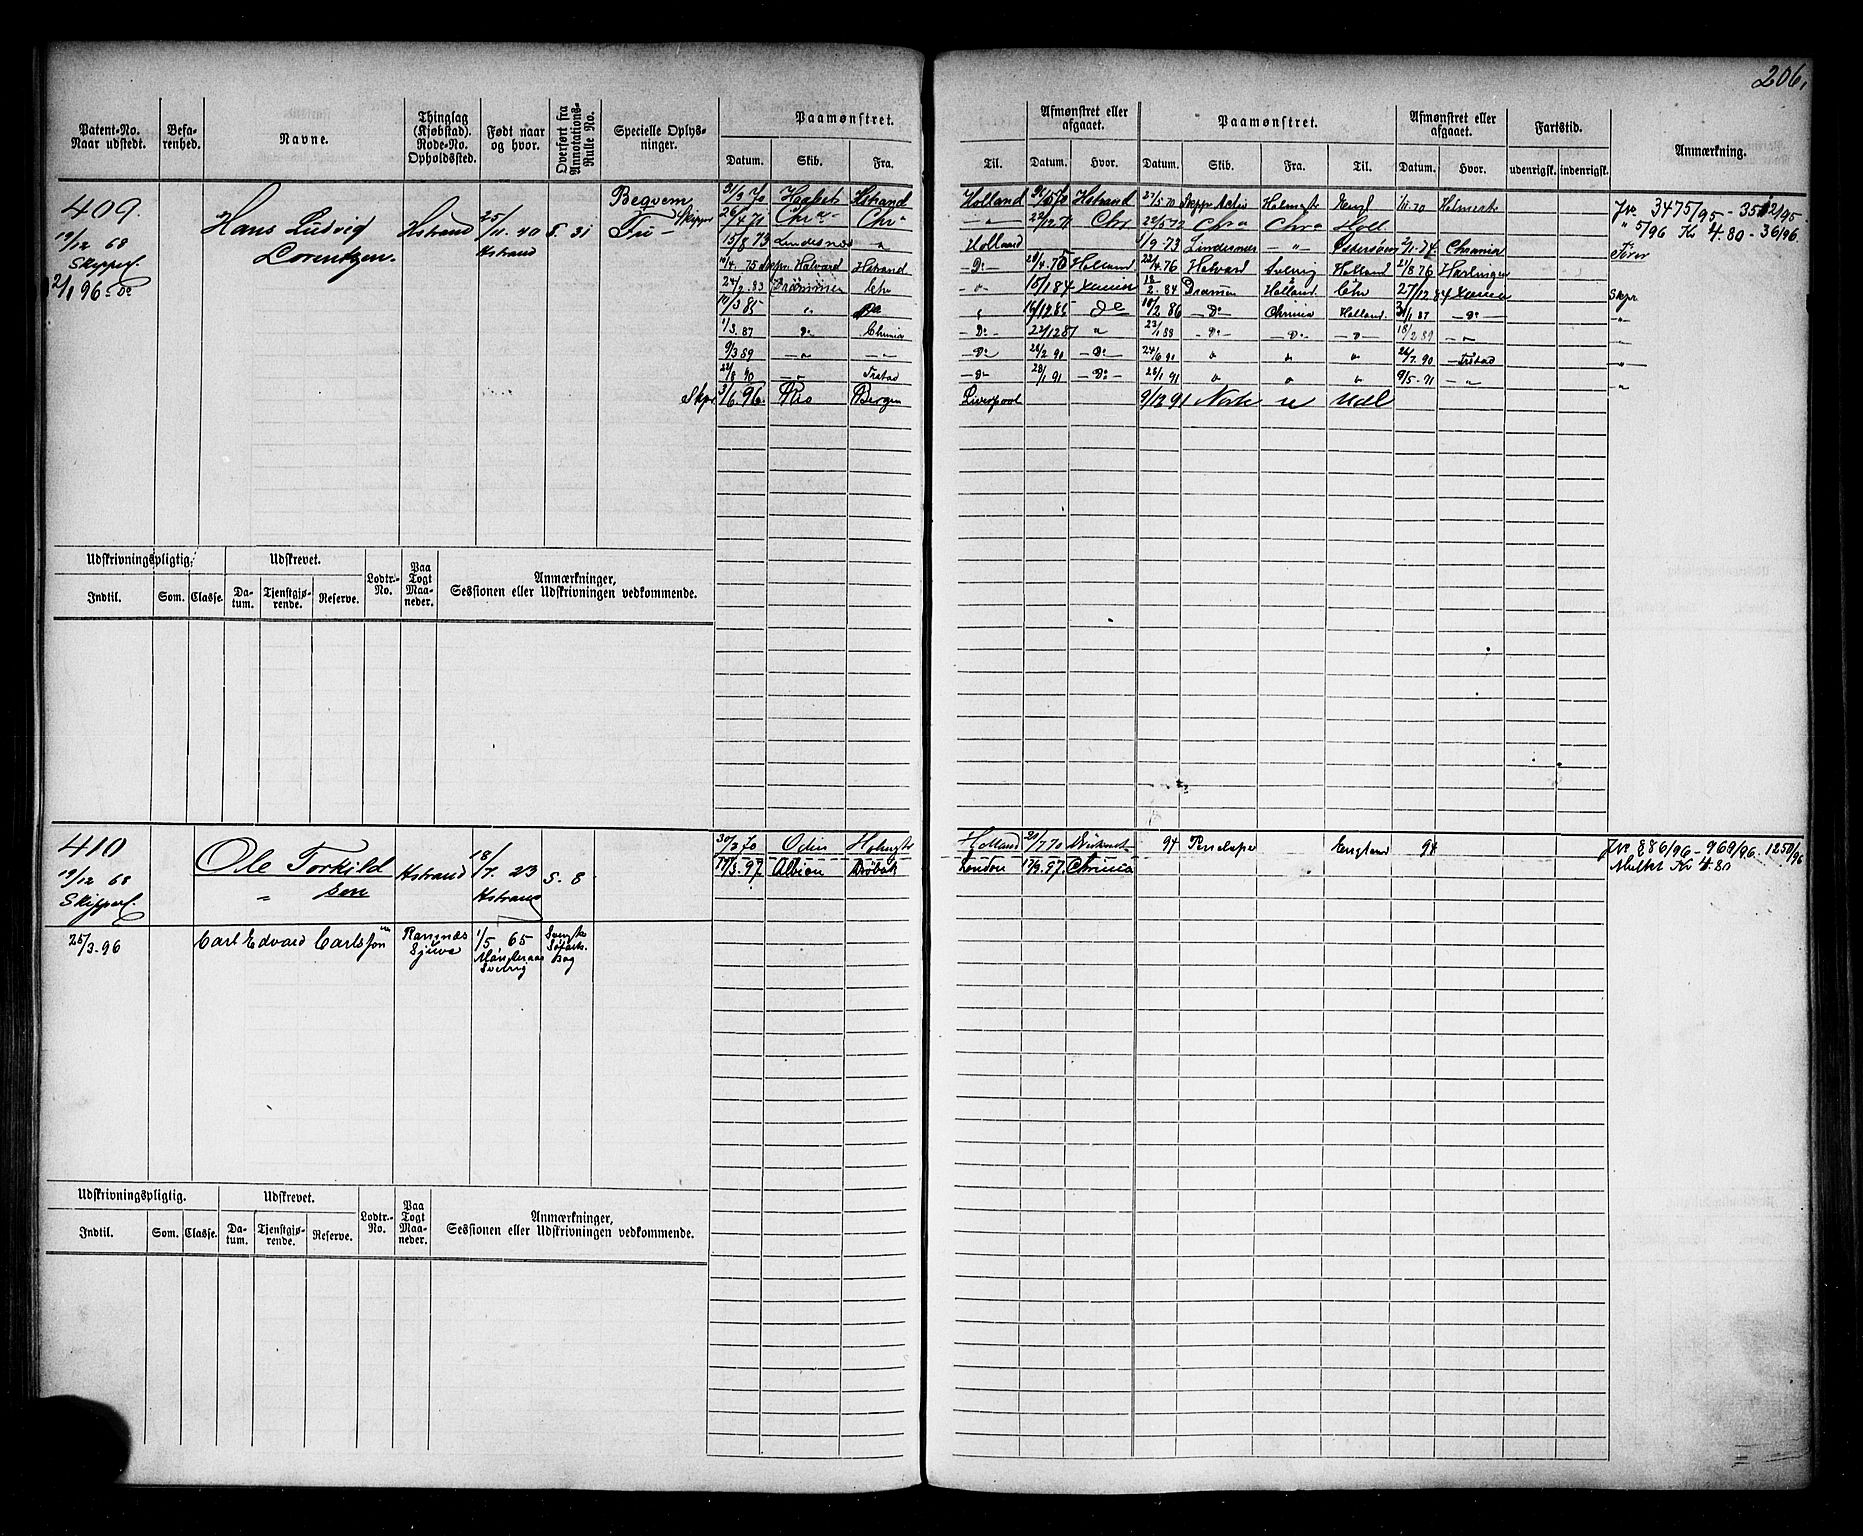 206.
Patent-No. Naar udstedt.
Befarenhed.
Navne.
Thinglag (Kjøbstad). Rode-No. Opholdssted.
Født naar og hvor.
Overført fra Annotations-Rulle No.
Specielle Oplysninger.
Paamønstret.
Datum. Skib. Fra.
Til.
Afmønstret eller afgaaet.
Datum. Hvor.
Paamønstret.
Datum. Skib. Fra. Til.
Afmønstret eller afgaaet.
Datum. Hvor.
Fartstid.
udenrigsk. indenrigsk.
Anmærkning.
409.
19/12 68
Skipper
2/1 96 do
Hans Ludvig
Lorentzen.
Hstrand
25/11 40
Hstrand
S. 31
Begvem
Skipper
31/3 70 Haabet Hstrand Holland Hstrand 27/5 70 Activ Holmestr Engl 1/11.70 Holmestr
26/4 71 Chra Chra 22/12 71 Chr 22/5 72 Chra Chra Holl.
15/8 73 Lindesnæs " Holland 1/9 73 Lindesnæs " Østersøen 2/1. 74 Chrania
10/4. 75 Halvard Hstrand Do Holland 22/4.76 Halvard Sverig Holland 21/8 76 Harlingen
24/2.83 Drammen Chr " 15/1 84 Xania 18/2. 84 Drammen Holland Chr 27/12 84 Xania
10/3 85 " 16/12 85 do 10/2 86 Do Chrania Holland. 31/1 87 Do
1/3. 87 Do Chrania Do 22/12 87 " 23/1 88 Do Do Do 18/2 89 "
9/3 89 " " Do 28/2. 90 Do 24/6 90 " " " 26/7. 90 Frstad
22/8 90 " Frstad Do 28/1 91 Do 28/1 91 " " " 9/5. 91 "
Skpr 3/6 96. Rio Bergen Liverpool 9/12 91 Norte " Udl
Jr. 3475/95 - 3512/95 -
" 5/96 Kr 4.80 - 36/96.
Fører
Skpr
Udskrivningspligtig.
Indtil. Som. Classe.
Udskrevet.
Datum. Tjenstgjørende. Reserve.
Lodtr.-No.
Paa Togt Maaneder.
Anmærkninger,
Sessionen eller Udskrivningen vedkommende.
410
19/12 68
Skipper
Ole Torkild
" sen
Hstrand
18/7 23
Hstrand
S. 8
30/3 70 Odin Holmestr Holland 20/7 70 94 Penelope England 94
17/3. 97. Albion Drøbak London 17/9. 97. Chrania
Jr. 886/96 - 969/96 - 1250/96
Mulkt Kr 4.80
25/3. 96
Carl Edvard Carlsson
Ramnæs
1/5. 65
Sverig
Svensk
Søfartsbog
Udskrivningspligtig.
Indtil. Som. Classe.
Udskrevet.
Datum. Tjenstgjørende. Reserve.
Lodtr.-No.
Paa Togt Maaneder.
Anmærkninger,
Sessionen eller Udskrivningen vedkommende.